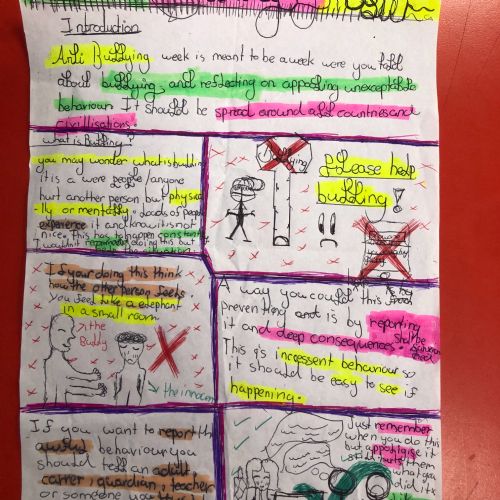 Introduction
Anti Bullying week is meant to be a week were you told
about bullying and reflecting on appolling unexceptable
behaviour. It should be spread around all countries and
civilisations.
what is Bullying?
you may wonder what is bullying
it is a were people/anyone
hurt another person but physica
-lly or mentally. Loads of people
experience it and know its not
nice. This has to happen constant
I wouldn't recommend doing this but
Bullying
Please help
bullying!
If your doing this think
how the other person feels
you feel like a elephant
in a small room
the
Bully
the innocent
A way you could this
preventing and is by reporting
it and deep consequences.
This is incessent behaviour so
it should be easy to see if
happening.
If you want to report
behaviour you
should tell an adult,
carrer, guardian, teacher
or someone you
Just remember
when you do this
but appoligise it
hurts them
what you
did it